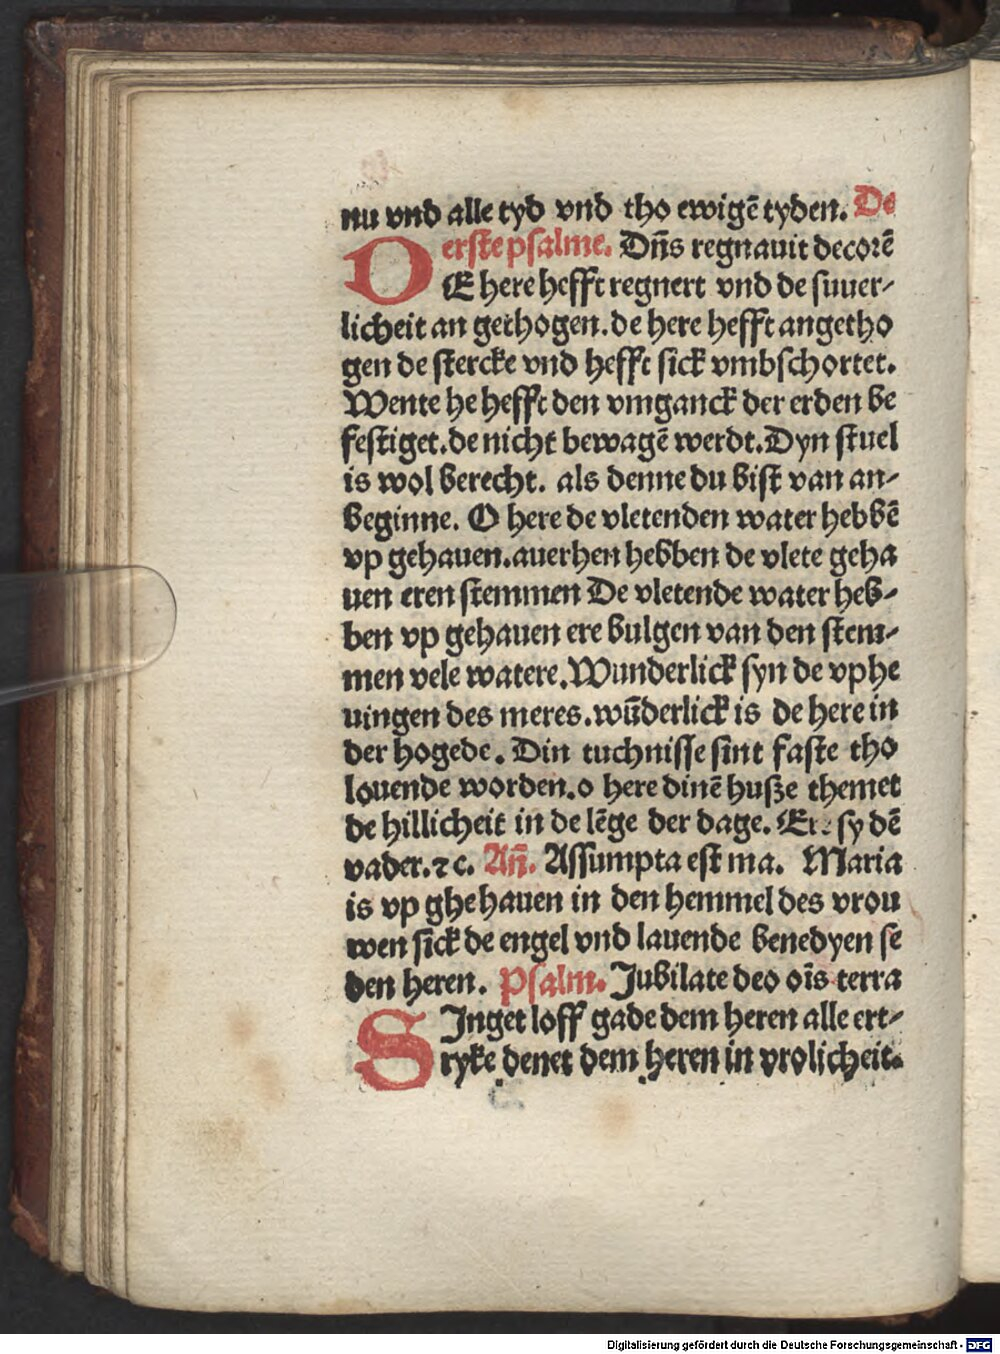 nu vnd alle tyd vnd tho ewigē tyden. De
erste psalme. Dn̄s regnauit decorē
DE here hefft regnert vnd de suuer-
licheit an gethogen. de here hefft angetho
gen de stercke vnd hefft sick vmbschortet.
Wente he hefft den vmganck der erden be
festiget. de nicht bewagē werdt. Dyn stuel
is wol berecht. als denne du bist van an-
beginne. O here de vletenden water hebbē
vp gehauen. auerhen hebben de vlete geha
uen eren stemmen De vletende water heb-
ben vp gehauen ere bulgen van den stem-
men vele watere. Wunderlick syn de vphe
uingen des meres. wūderlick is de here in
der hogede. Din tuchnisse sint faste tho
louende worden. o here dinē husze themet
de hillicheit in de lēge der dage. Ere sy dē
vader. ⁊c. An̄. Assumpta est ma. Maria
is vp ghehauen in den hemmel des vrou
wen sick de engel vnd lauende benedyen se
den heren. Psalm. Jubilate deo oīs terra
SInget loff gade dem heren alle ert-
ryke denet dem heren in vrolicheit.
Digitalisierung gefördert durch die Deutsche Forschungsgemeinschaft - DFG